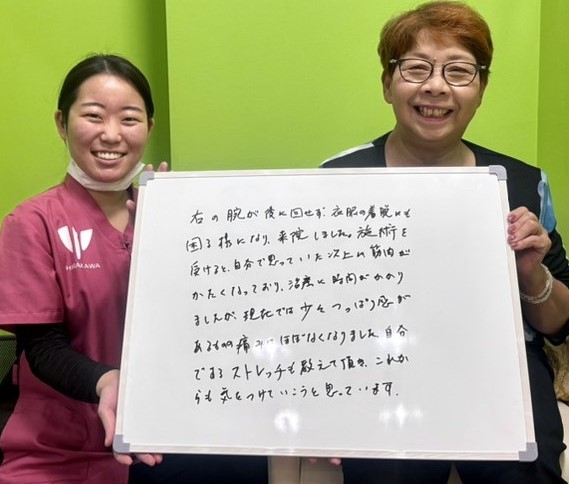 右の腕が後に回せず、衣服の着脱にも
困る様になり、来院しました。施術を
受けると、自分で思っていた以上に筋肉が
かたくなっており、治療に時間がかかり
ましたが、現在では少々つっぱり感が
あるものの痛みはほぼなくなりました。自分
でするストレッチも教えて頂き、これか
らも気をつけていこうと思っています。